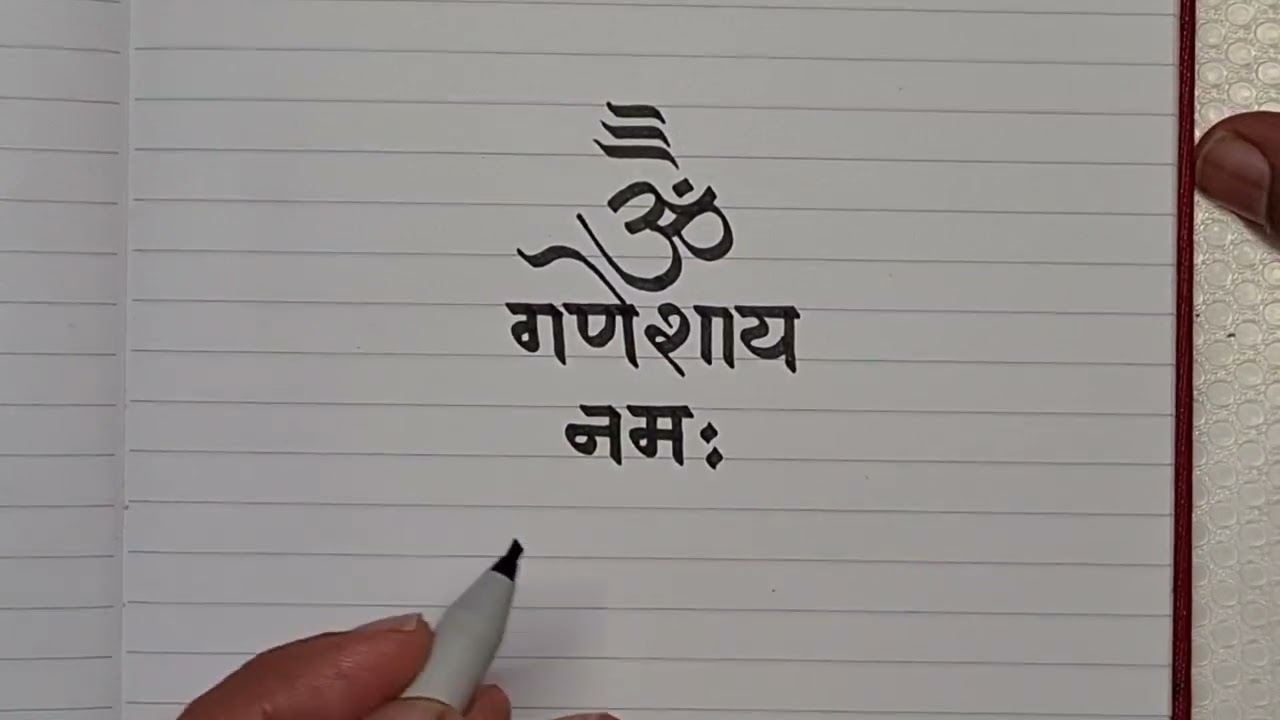 ॐ
गणेशाय
नमः